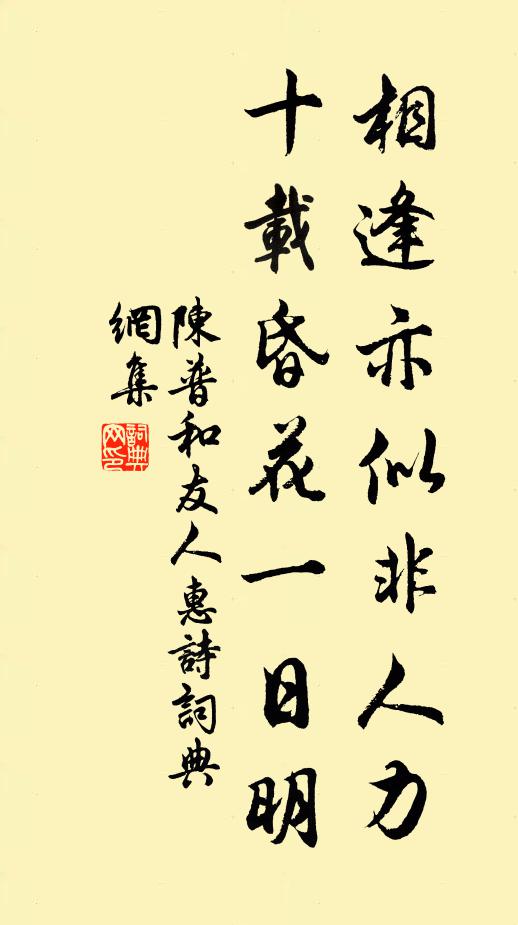 相逢亦似非人力
十載昏花一日明
陳普和友人惠詩詞典
網集
詞典网印